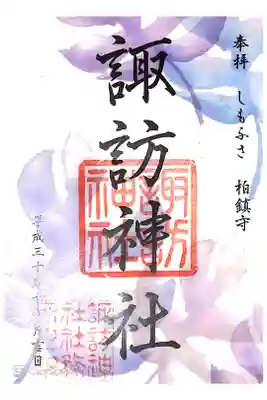 奉拝 しもふさ 柏鎮守
諏訪神社
諏訪
神社
平成三十年 月吉日
諏訪神
社社務